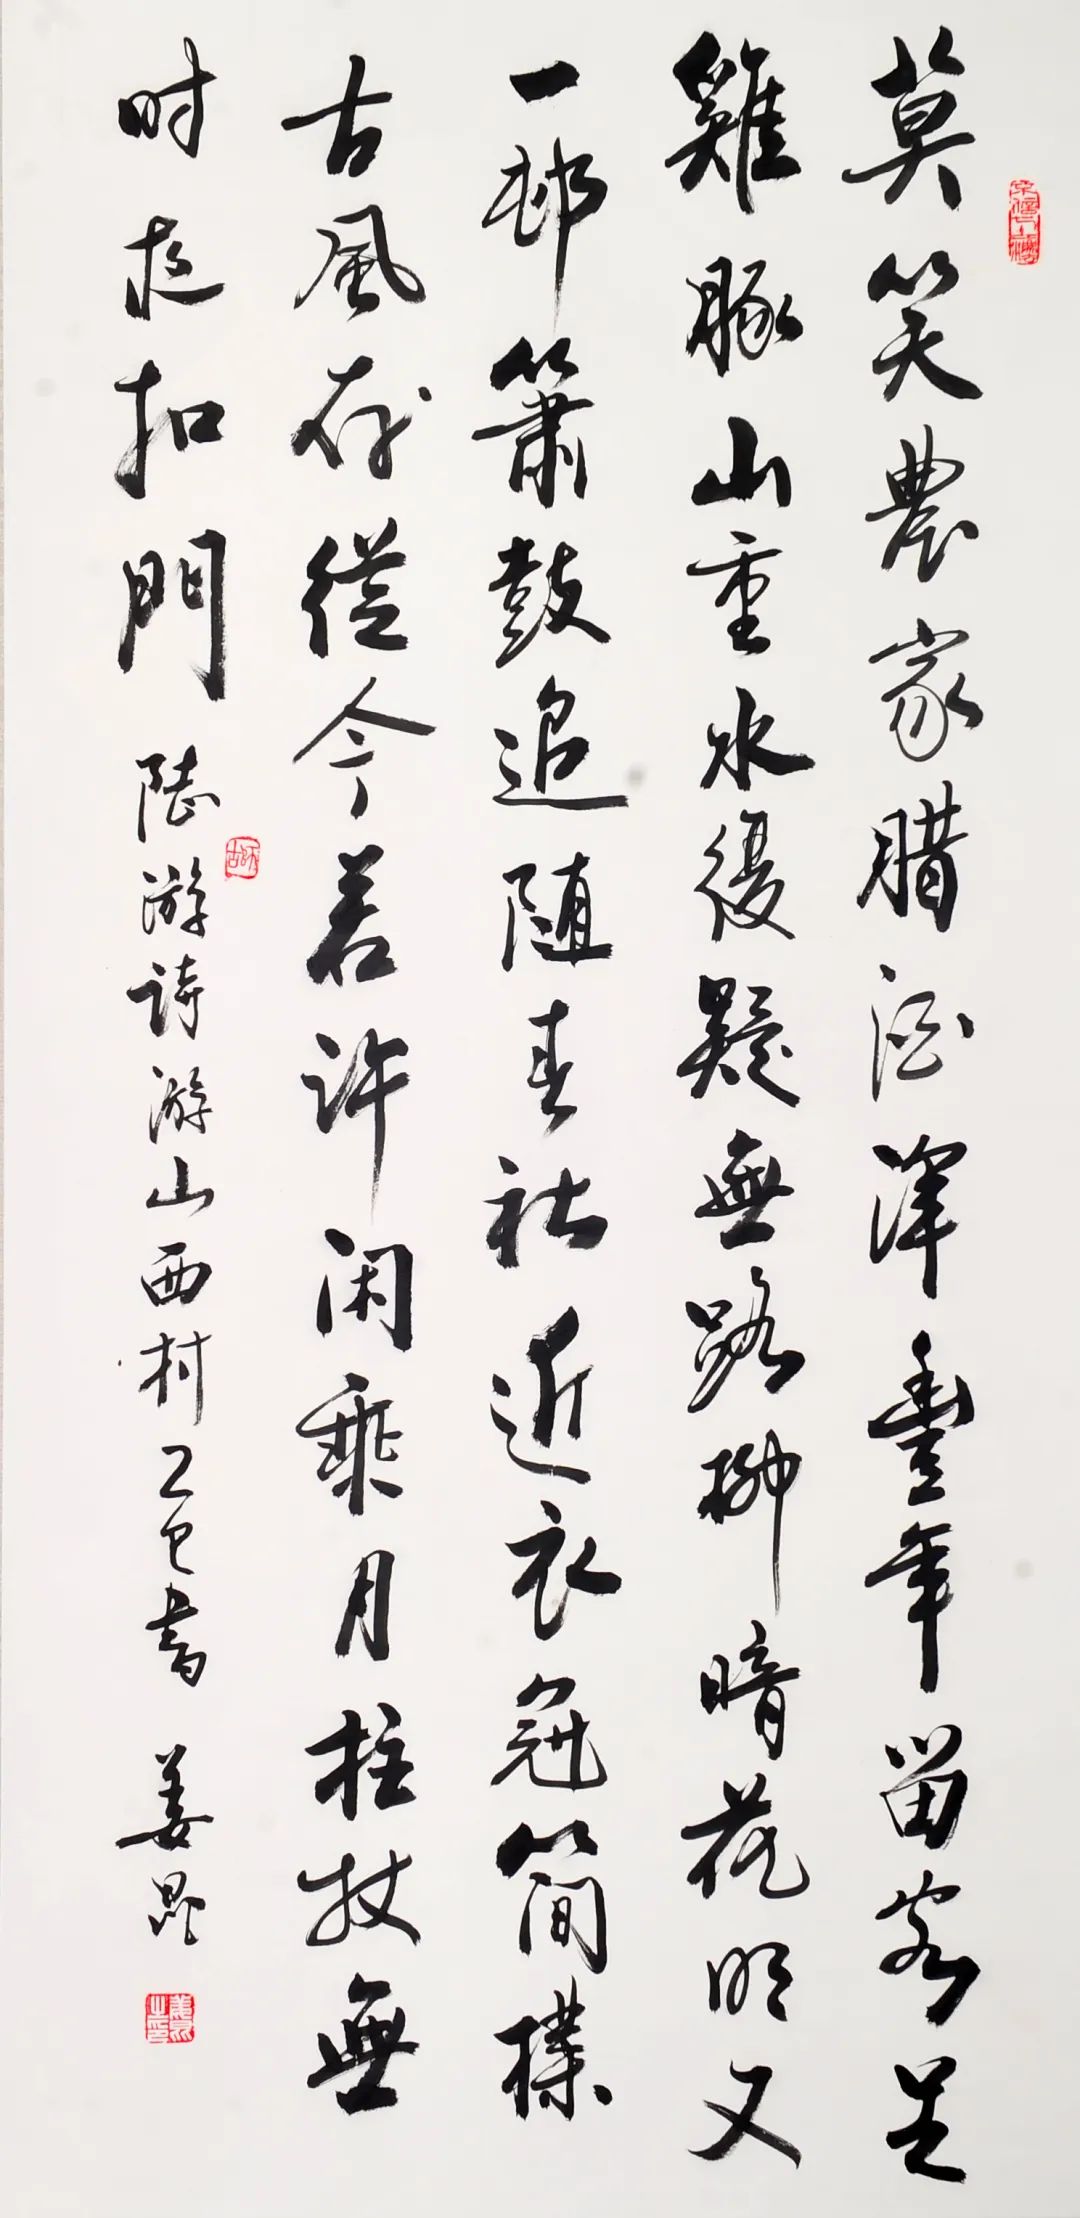 莫笑農家腊酒渾豐年留客足
雞豚山重水復疑無路柳暗花明又
一邨簫鼓追随春社近衣冠簡樸
古風存從今若许闲乘月拄杖無
时夜扣門
陸游诗游山西村乙巳書 姜昆